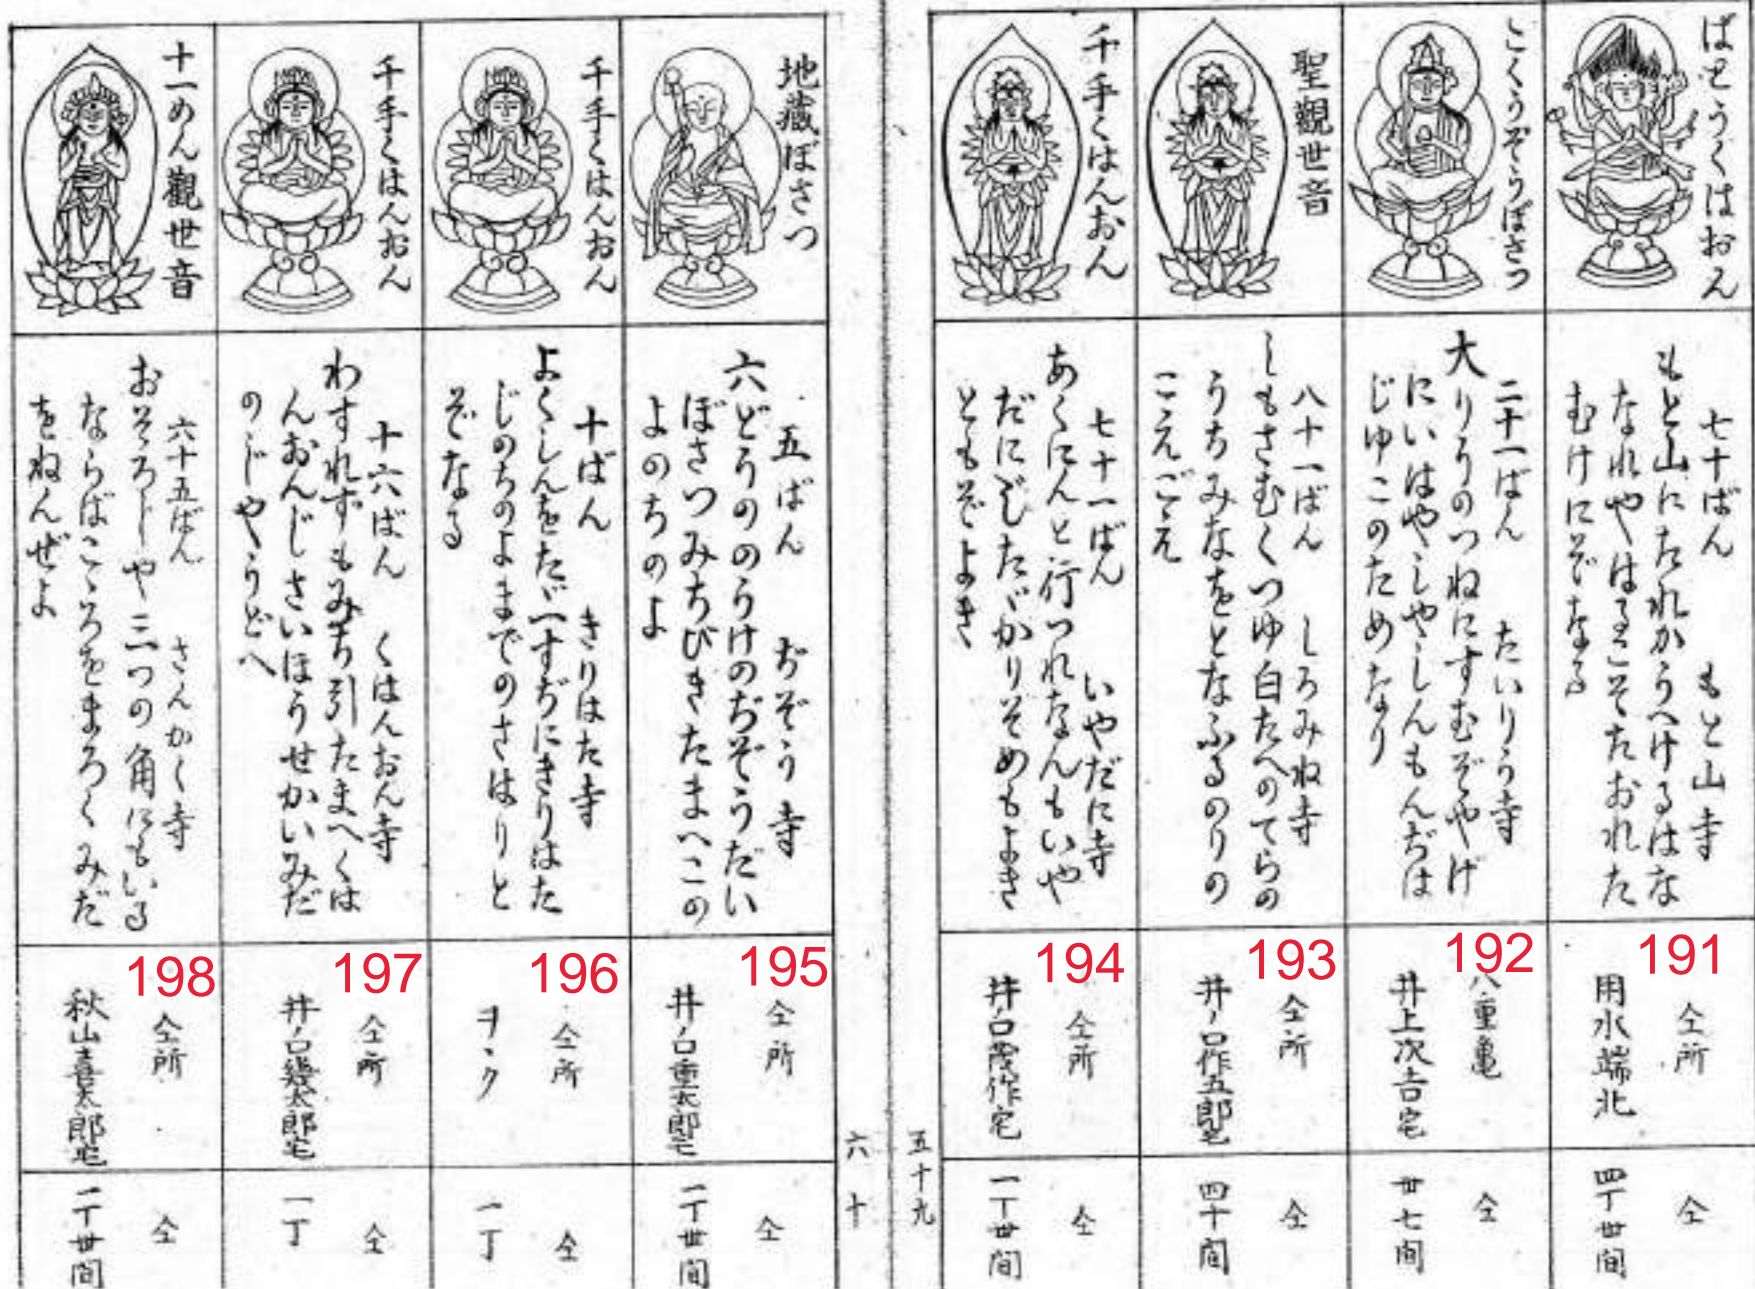 ばとうくはおん
七十ばん　もと山寺
もと山にたれかうへけるはな
なれやはるこそたおれた
むけにぞなる
191
仝所
用水端北
仝
四丁廿間
こくうぞうぼさつ
二十一ばん　たいりう寺
大りうのつねにすむぞやげ
にいはやゝしやゝしんもんぢは
じゆごのためなり
192
八重亀
井上次吉宅
仝
廿七間
聖觀世音
八十一ばん　しろみね寺
しもさむくつゆ白たへのてらの
うちみなをとなふるのりの
こえごえ
193
仝所
井ノ口作五郎宅
仝
四十間
千手くはんおん
七十一ばん　いやだに寺
あくにんと行つれなんもいや
だにじたゞかりそめもよき
ともぞよき
194
仝所
井ノ口茂作宅
仝
一丁廿間
五十九
六十
地藏ぼさつ
五ばん　ぢぞう寺
六どうののうけのぢぞうだい
ぼさつみちびきたまへこの
よのちのよ
195
仝所
井ノ口重太郎宅
仝
一丁廿間
千手くはんおん
十ばん　きりはた寺
よくしんをたゞ一すぢにきりはた
じのちのよまでのさはりと
ぞなる
196
仝所
ヲヽク
仝
一丁
千手くはんおん
十六ばん　くはんおん寺
わすれずもみちち引たまへくは
んおんじさいほうせかいみだ
のじやうどへ
197
仝所
井ノ口幾太郎宅
仝
一丁
十一めん觀世音
六十五ばん　さんかく寺
おそろしや三つの角にもいる
ならばこゝろをまろくみだ
をねんぜよ
198
仝所
秋山喜太郎宅
仝
二丁廿間